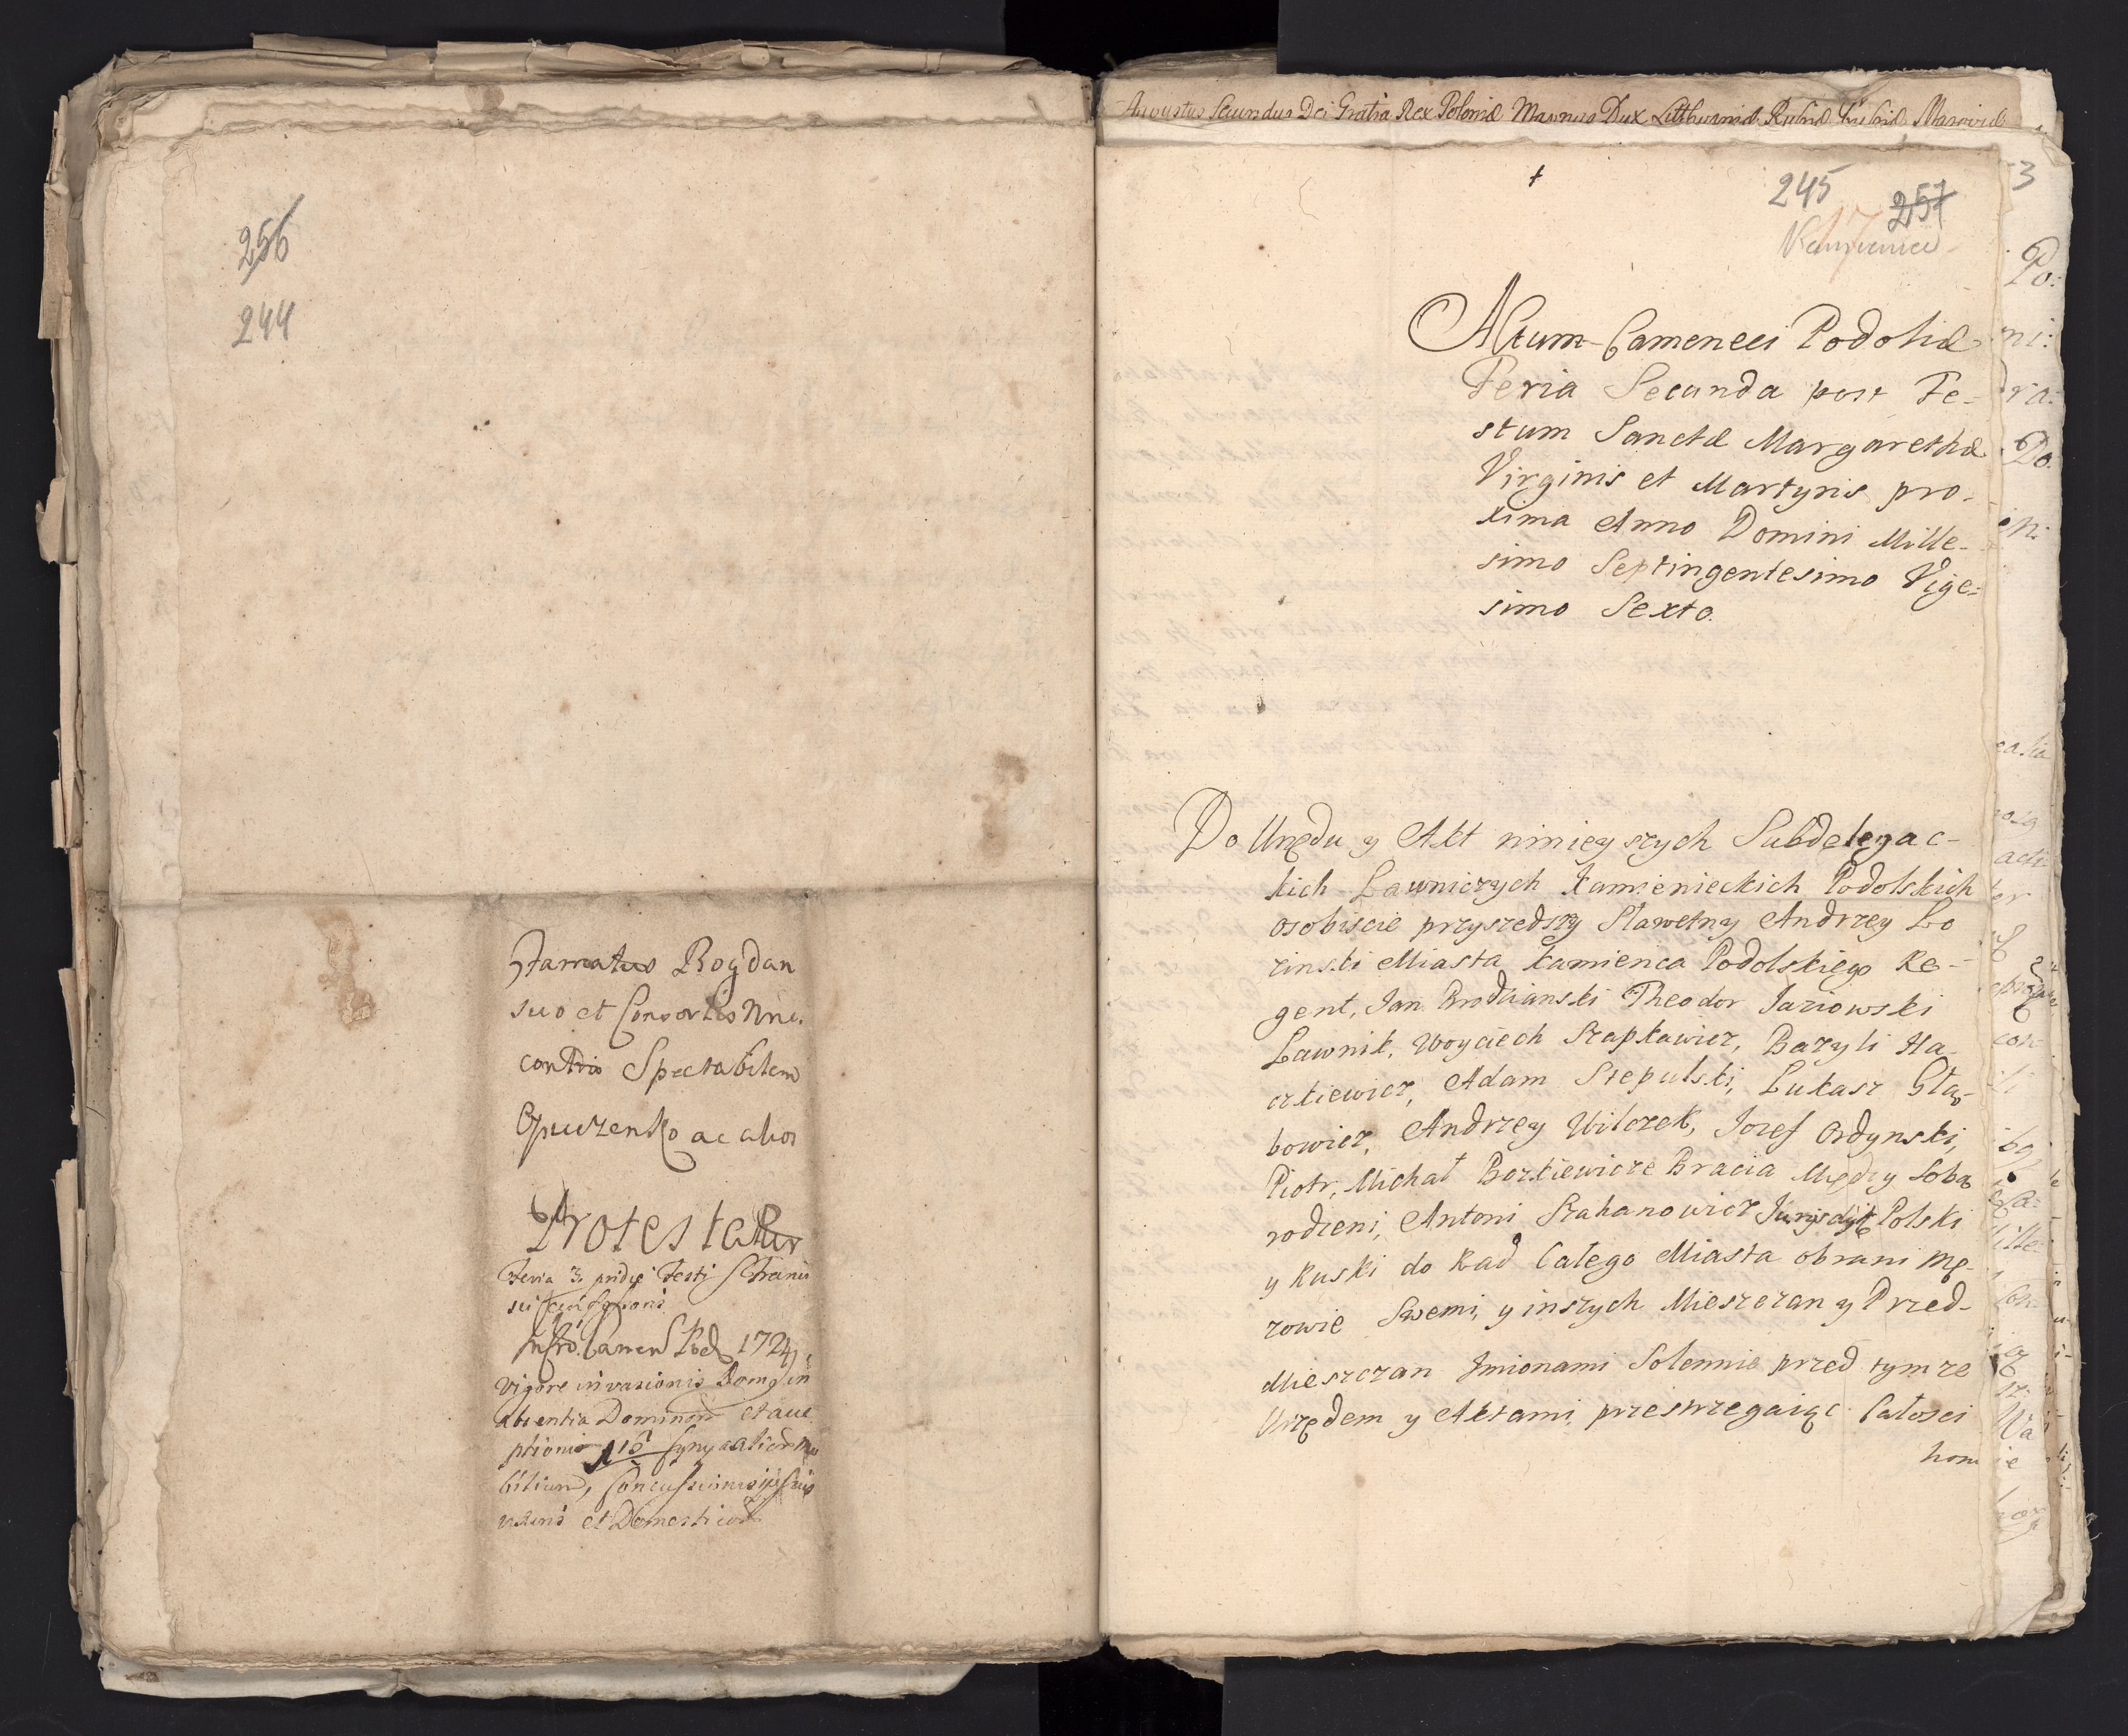 256
244
Famatus Bogdan
suo et Consortis Nne.
contra Spectabilem
Opuszenko ac alios
Protestatur
Feria 3. pridie Festi
1724
vigore invasionis Domus in
absentia Dominorum et
et Domesticor
Augustus Secundus Dei Gratia Rex Poloniæ Magnus Dux Lithuaniæ Russiæ Prussiæ Masoviæ
245
257
17
Kamieniec
Actum Cameneci Podoliæ
Feria Secunda post Fe-
stum Sanctæ Margarethæ
Virginis et Martyris pro-
xima Anno Domini Mille-
simo Septingentesimo Vige-
simo Sexto.
Do Urzędu y Akt ninieyszych Subdelegac-
kich Ławniczych Kamienieckich Podolskich
osobiscie przyszedszy Sławetny Andrzey Ło
zinski Miasta Kamienca Podolskiego Re-
gent, Jan Theodor Jaziowski
Ławnik, Woyciech Szapkawicz, Bazyli Ha
czkiewicz, Adam Stepulski, Łukasz Głą-
bowicz, Andrzey Wilczek, Jozef Ordynski,
Piotr, Michał Bozkiewicze Bracia Między Sobą
rodzeni, Antoni Szahanowicz Jurysdykc Polski
y Ruski do Rad Całego Miasta obrani Mę-
zowie Swemi, y inszych Mieszczan y Przed-
Mieszczan Imionami Solennie przed tymze
Urzędem y Aktami, przestrzegaiąc Całosci
hon